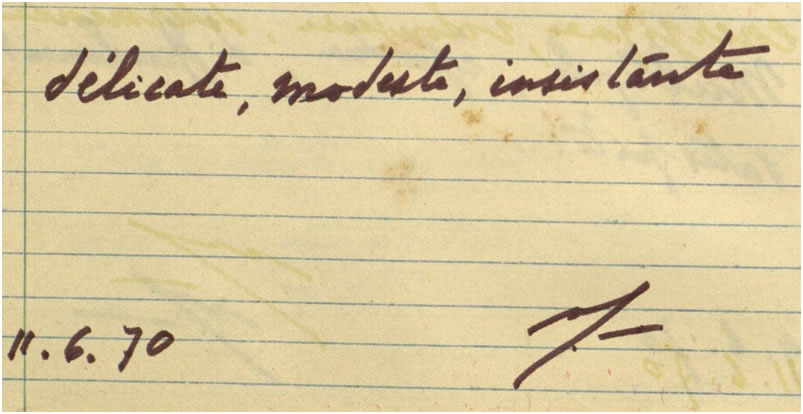 délicate, modeste, insistante
11.6.70